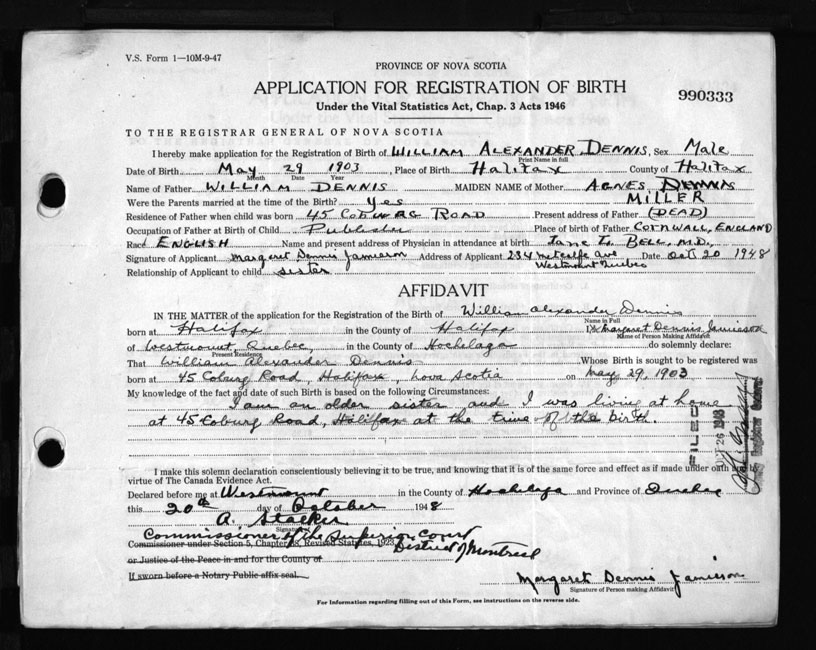 V.S. Form 1—10M-9-47
PROVINCE OF NOVA SCOTIA
APPLICATION FOR REGISTRATION OF BIRTH
990333
Under the Vital Statistics Act, Chap. 3 Acts 1946
TO THE REGISTRAR GENERAL OF NOVA SCOTIA
I hereby make application for the Registration of Birth of WILLIAM ALEXANDER DENNIS, Sex Male
Print Name in full
Date of Birth May 29 1903, Place of Birth Halifax County of Halifax
Month Date Year
Name of Father WILLIAM DENNIS MAIDEN NAME of Mother AGNES DENNIS
MILLER
Were the Parents married at the time of the Birth? Yes
Residence of Father when child was born 45 COBURG ROAD Present address of Father (DEAD)
Occupation of Father at Birth of Child Publisher Place of birth of Father CORNWALL, ENGLAND
Race ENGLISH Name and present address of Physician in attendance at birth Jane L. BELL, M.D.
Signature of Applicant Margaret Dennis Jamieson Address of Applicant 234 Metcalfe Ave Date Oct 20 1948
Westmount Quebec
Relationship of Applicant to child sister
AFFIDAVIT
IN THE MATTER of the application for the Registration of Birth of William Alexander Dennis
Name in Full
born at Halifax in the County of Halifax I, Margaret Dennis Jamieson
Name of Person Making Affidavit
of Westmount, Quebec, in the County of Hochelaga do solemnly declare:
Present Residence
That William Alexander Dennis Whose Birth is sought to be registered was
born at 45 Coburg Road, Halifax, Nova Scotia on May 29, 1903
My knowledge of the fact and date of such Birth is based on the following Circumstances:
I am an older sister and I was living at home
at 45 Coburg Road, Halifax at the time of the birth.
FILED
26 1948
I make this solemn declaration conscientiously believing it to be true, and knowing that it is of the same force and effect as if made under oath and by
virtue of The Canada Evidence Act.
Declared before me at Westmount in the County of Hochelaga and Province of Quebec
this 20th day of October 1948
A. Stalker
Commissioner of the Superior Court
Commissioner under Section 5, Chapter 18, Revised Statutes, 1923
District of Montreal
or Justice of the Peace in and for the County of
If sworn before a Notary Public affix seal
Margaret Dennis Jamieson
Signature of Person making Affidavit
For Information regarding filling out of this Form, see instructions on the reverse side.